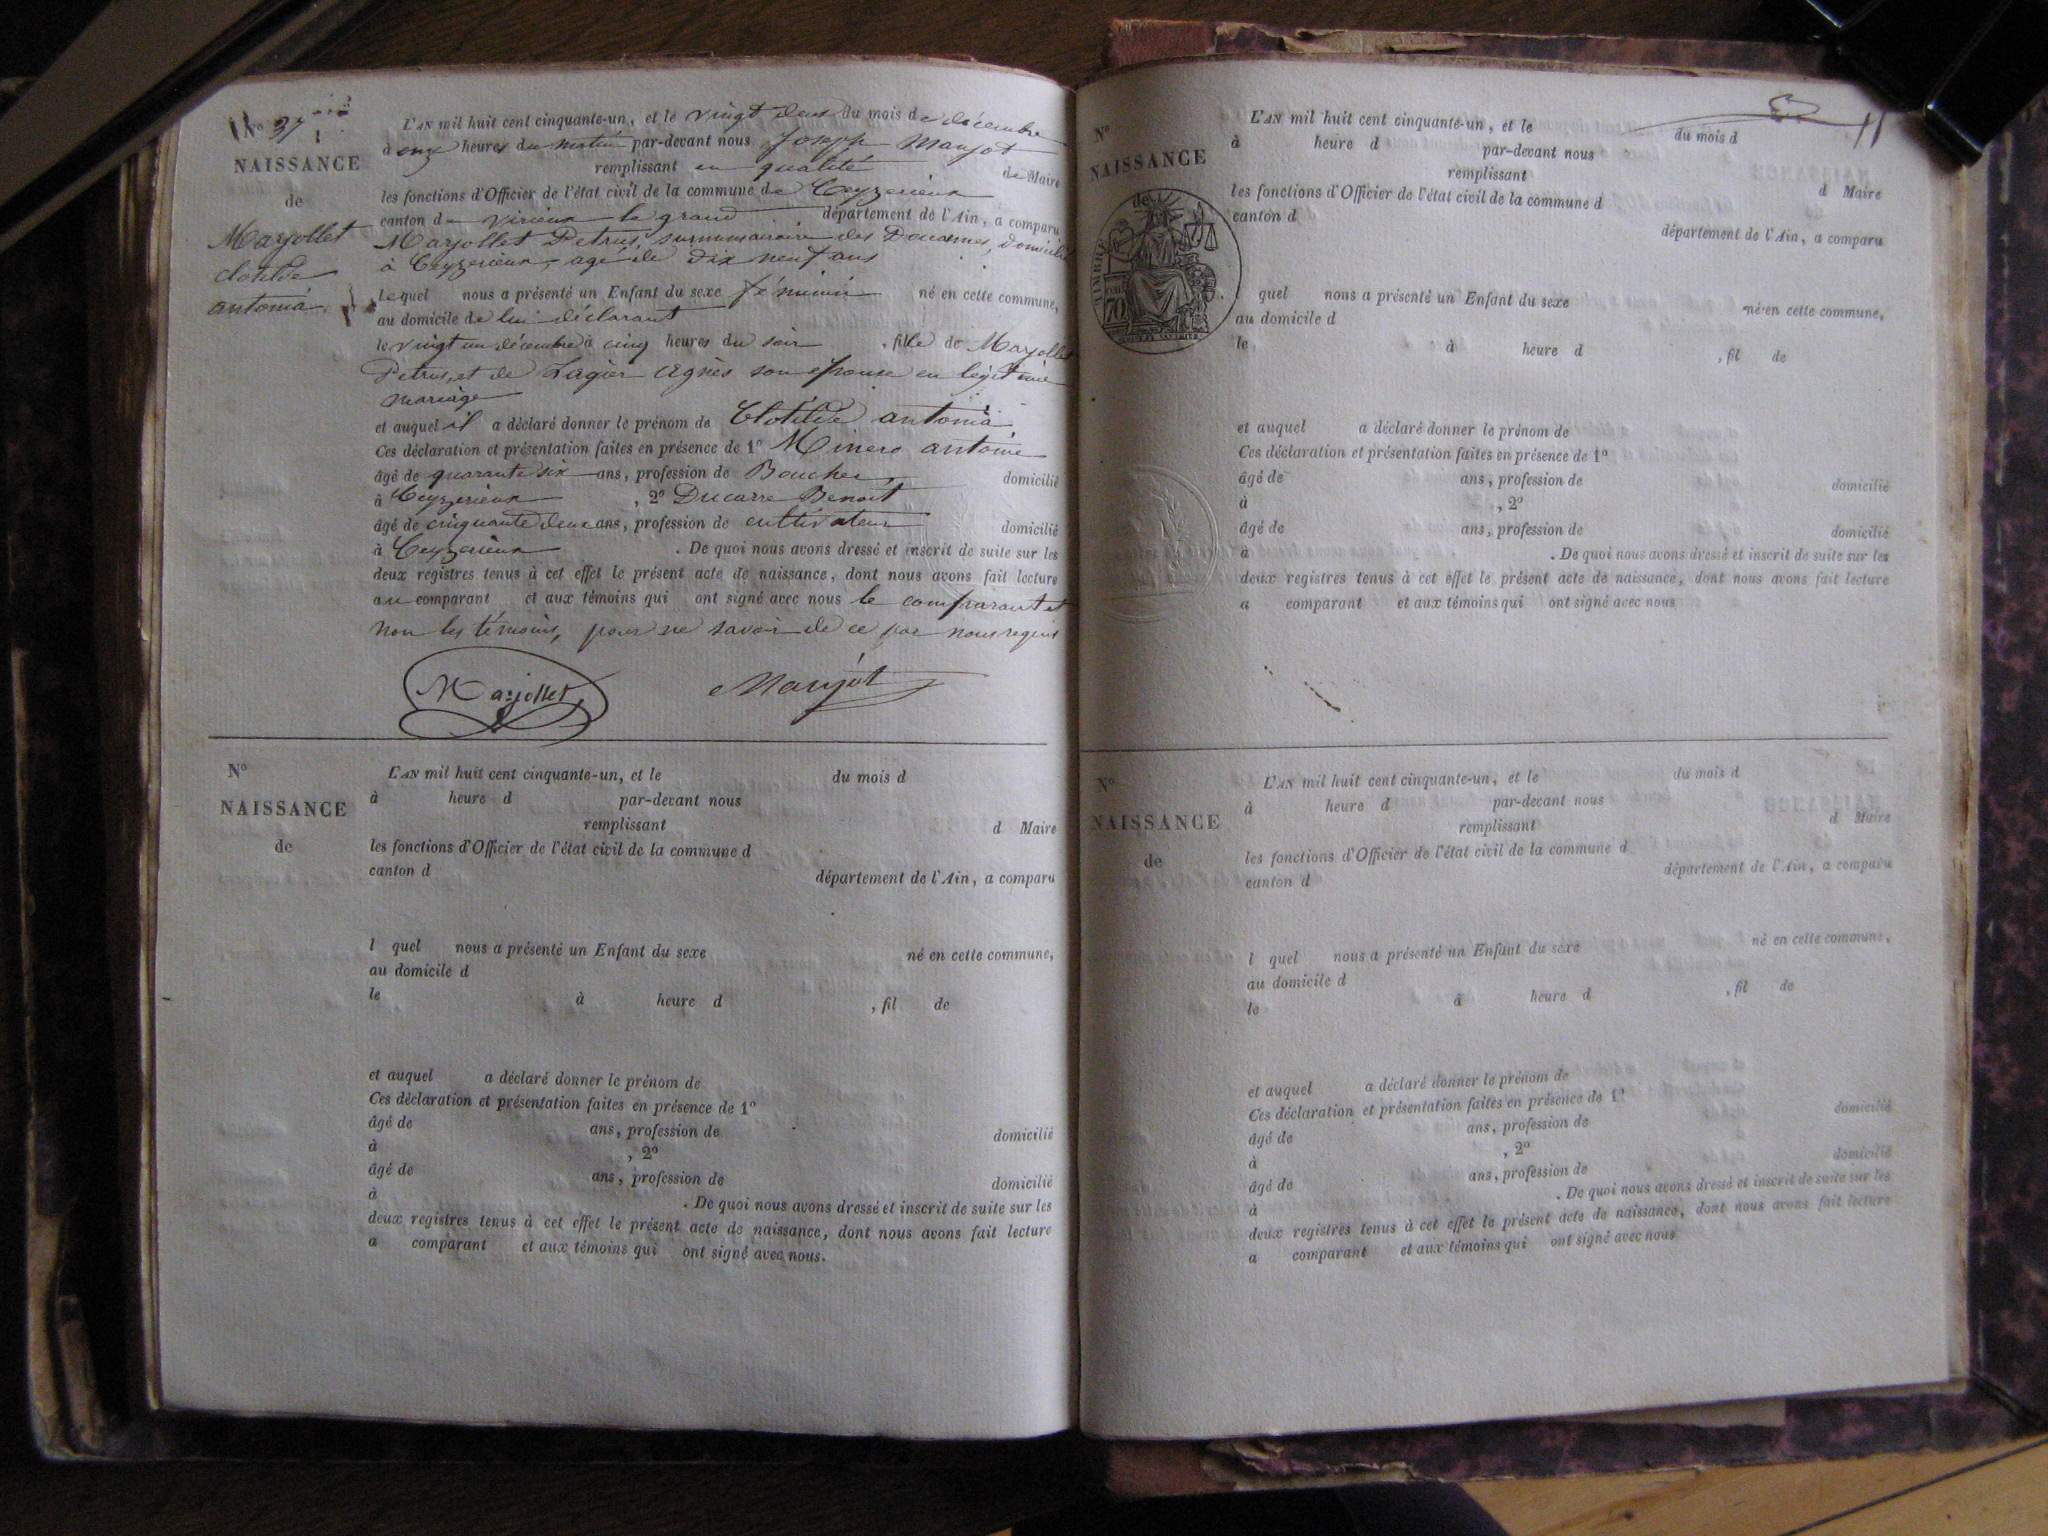 N° 37
NAISSANCE
de
Marjollet
Clotilde
antonia
L'AN mil huit cent cinquante-un, et le vingt deux du mois de décembre
à onze heures du matin par-devant nous Joseph Maujot
remplissant en qualité de Maire
les fonctions d'Officier de l'état civil de la commune de Ceyzerieux
canton de virieux le grand département de l'Ain, a comparu
Marjollet Petrus, surnumairaire des Douannes, domicilié
à Ceyzerieux, agé de dix neuf ans
lequel nous a présenté un Enfant du sexe féminin né en cette commune,
au domicile de lui déclarant
le vingt un décembre à cinq heures du soir , fille de Marjollet
Petrus, et de Lagier Agnès son épouse en legitime
mariage
et auquel il a déclaré donner le prénom de Clotilde antonia
Ces déclaration et présentation faites en présence de 1° Minero antoine
âgé de quarante six ans, profession de Boucher, domicilié
à Ceyzerieux , 2° Ducarre Benoit
âgé de cinquante deux ans, profession de cultivateur domicilié
à Ceyzerieux . De quoi nous avons dressé et inscrit de suite sur les
deux registres tenus à cet effet le présent acte de naissance, dont nous avons fait lecture
au comparant et aux témoins qui ont signé avec nous le comparant et
non les témoins, pour ne savoir de ce par nous requis
Marjollet
Maujot
N°
NAISSANCE
de
L'AN mil huit cent cinquante-un, et le du mois d
à heure d par-devant nous
remplissant d Maire
les fonctions d'Officier de l'état civil de la commune d
canton d département de l'Ain, a comparu
l quel nous a présenté un Enfant du sexe né en cette commune,
au domicile d
le à heure d , fil de
et auquel a déclaré donner le prénom de
Ces déclaration et présentation faites en présence de 1°
âgé de ans, profession de domicilié
à , 2°
âgé de ans, profession de domicilié
à . De quoi nous avons dressé et inscrit de suite sur les
deux registres tenus à cet effet le présent acte de naissance, dont nous avons fait lecture
a comparant et aux témoins qui ont signé avec nous.
11
N°
NAISSANCE
de
TIMBRE
70
L'AN mil huit cent cinquante-un, et le du mois d
à heure d par-devant nous
remplissant d Maire
les fonctions d'Officier de l'état civil de la commune d
canton d département de l'Ain, a comparu
quel nous a présenté un Enfant du sexe né en cette commune,
au domicile d
le à heure d , fil de
et auquel a déclaré donner le prénom de
Ces déclaration et présentation faites en présence de 1°
âgé de ans, profession de domicilié
à , 2°
âgé de ans, profession de domicilié
à . De quoi nous avons dressé et inscrit de suite sur les
deux registres tenus à cet effet le présent acte de naissance, dont nous avons fait lecture
a comparant et aux témoins qui ont signé avec nous
N°
NAISSANCE
de
L'AN mil huit cent cinquante-un, et le du mois d
à heure d par-devant nous
remplissant d Maire
les fonctions d'Officier de l'état civil de la commune d
canton d département de l'Ain, a comparu
l quel nous a présenté un Enfant du sexe né en cette commune,
au domicile d
le à heure d , fil de
et auquel a déclaré donner le prénom de
Ces déclaration et présentation faites en présence de 1°
âgé de ans, profession de domicilié
à , 2°
âgé de ans, profession de domicilié
à . De quoi nous avons dressé et inscrit de suite sur les
deux registres tenus à cet effet le présent acte de naissance, dont nous avons fait lecture
a comparant et aux témoins qui ont signé avec nous